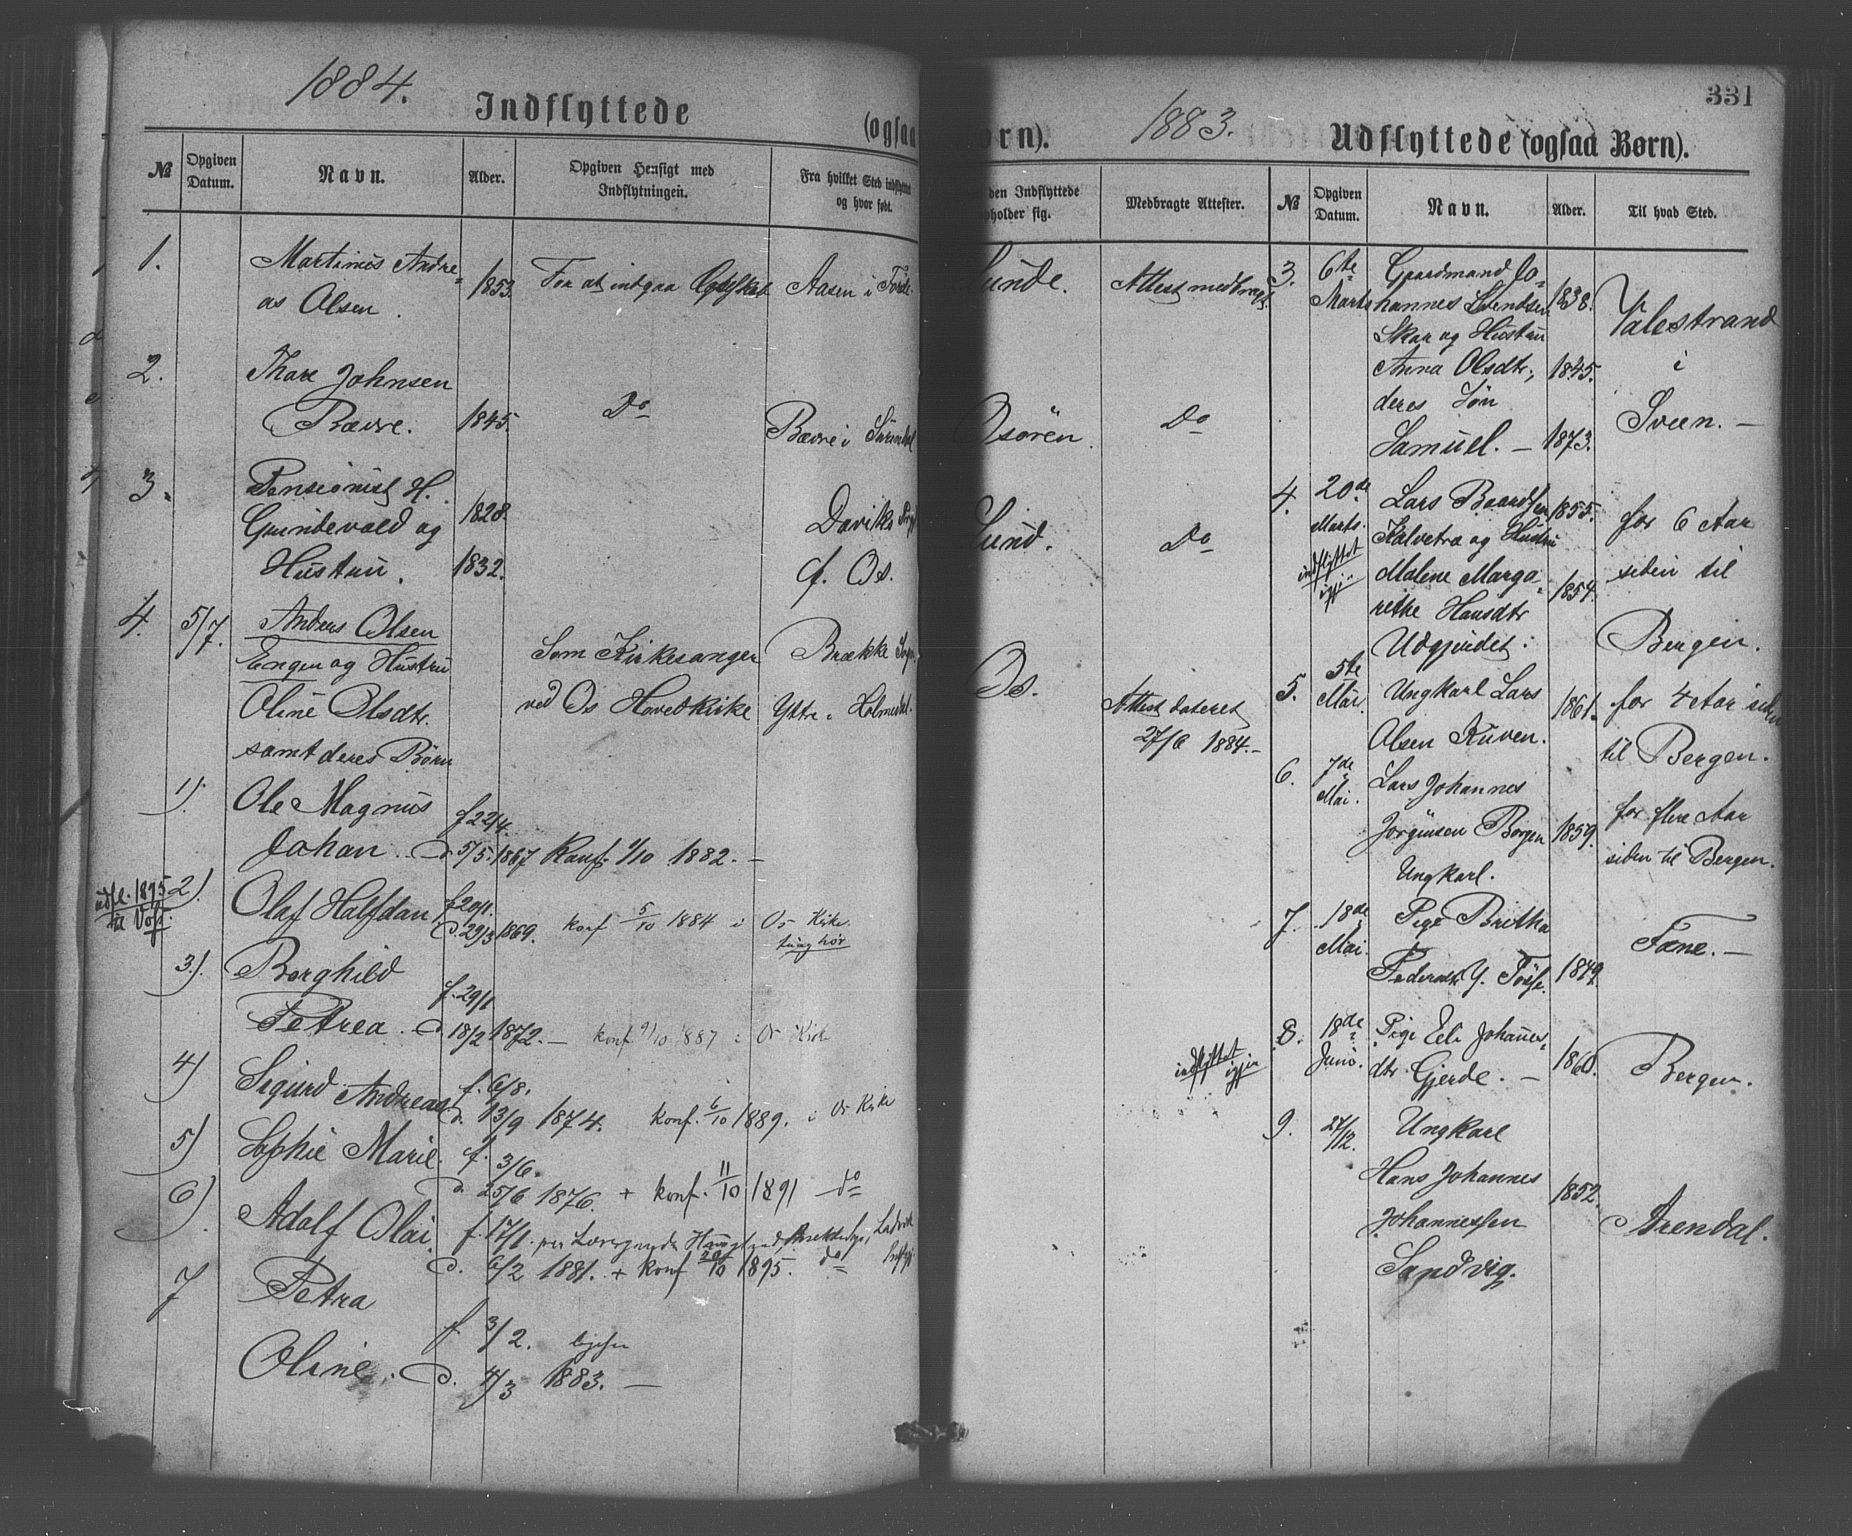 1884.
Indflyttede
(ogsaa Børn).
№
Opgiven Datum.
Navn.
Alder.
Opgiven Hensigt med Indflytningen.
Fra hvilket Sted indflyttet og hvor født.
den Indflyttede opholder sig.
Medbragte Attester.
1. Martinus Andre- 1853. For at indgaa Ægteskab Aasen i Førde Sunde. Attest medbragt.
as Olsen.
2. Thore Johnsen
Bævre. 1845. Do Bævre i Surendal Osören. Do
3. Pensionist H.
Grundevald og 1828. Daviks Prgj Sund. Do
Hustru. 1832. f. Os.
4. 5/7. Anders Olsen
Engen og Hustru Som Kirkesanger Brække Sogn Os.
Oline Olsdtr. ved Os Hovedkirke Yttre Holmedal. Attest dateret
samt deres Børn 27/6 1884.-
1). Ole Magnus f 22/4.
Johan. D. 5/5 1867 Konf. 1/10 1882. -
udfl. 1895
til Vos.
2). Olaf Halfdan f 20/1.
D. 29/3 1869. konf 5/10 1884 i Os Kirke
3). Borghild f. 29/1
Petrea. D. 18/2 1872. - konf 9/10 1887 i Os Kirke
4) Sigurd Andreas f. 6/8.
D. 13/9 1874. konf. 6/10 1889. i Os Kirke
5) Sophie Marie f. 3/6.
D. 25/6 1876. + konf. 11/10 1891 do
6) Adolf Olai f. 17/1.
D. 6/2 1881. + konf 20/10 1895. do
7 Petra
f. 3/2.
Oline. D. 4/3 1883. -
1883.
Udflyttede (ogsaa Børn).
331
№
Opgiven Datum.
Navn.
Alder.
Til hvad Sted.
3. 6te Gaardmand Jo-
Marts hannes Svendsen 1838. Valestrand
Skaa og Hustru i
Anna Olsdtr, 1845. Sveen. -
deres Søn
Samuel. - 1873.
4. 20de Lars Baardsen 1855. for 6 Aar
Marts. Kalvetræ og Hustru siden til
indflyttet Malene Marga- 1854. Bergen.
igjen rethe Hansdtr
Udgjindet:
5. 5te Ungkarl Lars 1861. for 4 Aar siden
Mai. Olsen Kuven. til Bergen.
6. 7de Lars Johannes for flere Aar
Mai. Jørgensen Borgen 1859. siden til Bergen.
Ungkarl.
7. 18de Pige Britha Fane. -
Mai. Pedersdtr Y. Tøsse. 1849.
8. 18de Pige Eli Johannes- 1860. Bergen.
indflyttet
igjen
Juni. dtr. Gjerde. -
9. 27/12. Ungkarl
Hans Johannes 1852. Arendal.
Johannessen
Sandvig.